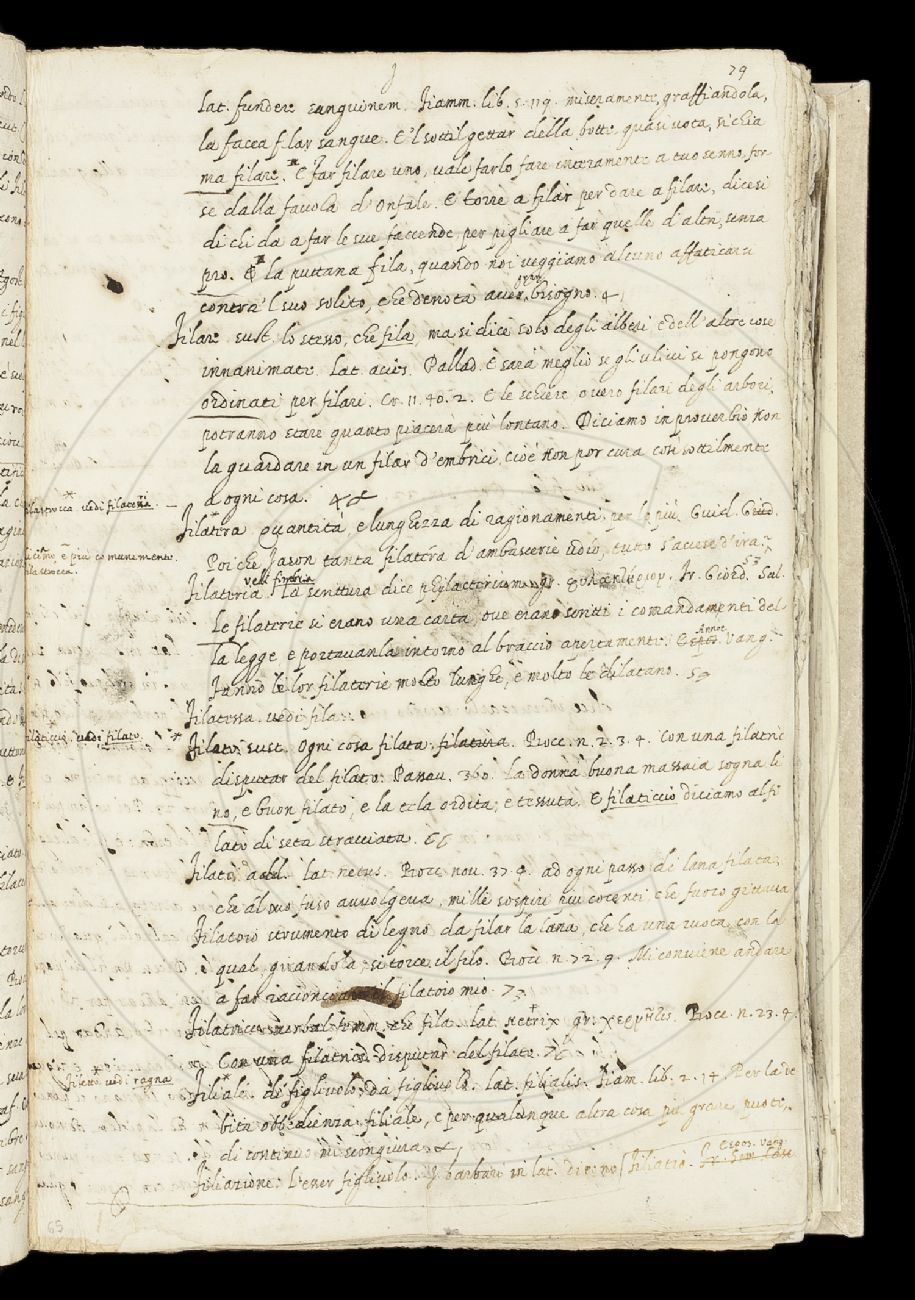 79
Lat. fundere sanguinem. Fiamm. lib. 5. 119. miseramente, graffiandola,
la facea filar sangue. E 'l sottil gettar della botte, quasi vota, si chia
ma filare. E far filare uno, vale farlo fare interamente a tuo senno, for
se dalla favola d'Onfale. E torre a filar per dare a filare, dicesi
di chi da a far le sue faccende per pigliare a far quelle d'altri, senza
pro. E la puttana fila, quando noi veggiamo alcuno affaticarsi
contra 'l suo solito, che denota aver gran bisogno.
Filare sust. lo stesso, che fila, ma si dice solo degli alberi e dell'altre cose
innanimate. Lat. acies. Pallad. E sarà meglio se gli ulivi si pongono
ordinati per filari. Cr. 11. 40. 2. E le schiere overo filari degli arbori,
potranno stare quanto piacerà più lontano. Diciamo in proverbio Non
la guardare in un filar d'embrici, cioè Non por cura così sottilmente
a ogni cosa.
filastrocca vedi filatera
Filatera quantità, e lunghezza di ragionamenti per lo più. Guid. Giud.
e più comunemente
filastrocca.
Poi che Jason tanta filatera d'ambascerie udìo, tutto s'accese d'ira.
vedi fimbria
Filateria. La scrittura dice phylacterium gr. φυλακτήριον. Fr. Giord. Sal.
Le filaterie si erano una carta, ove erano scritti i comandamenti del
la legge e portavanla intorno al braccio apertamente. Annot. Vang.
Fanno le lor filaterie molto lunghe, e molto le dilatano.
Filatessa. vedi fila.
filaticcio vedi filato
Filato, sust. Ogni cosa filata. filatura. Bocc. n. 2. 3. 4. Con una filatrice
disputar del filato. Passav. 360. La donna buona massaia sogna li
no, e buon filato, e la tela ordita, e tessuta. E filaticcio diciamo al fi
lato di seta stracciata.
Filato add. lat. netus. Bocc. nov. 37. 4. ad ogni passo di lana filata,
che al suo fuso avvolgeva, mille sospiri più cocenti che fuoco gittava
Filatoio strumento di legno da filar la lana, che ha una ruota, con la
qual, girandola, si torce il filo. Bocc. n. 72. 9. Mi conviene andare
a far racconciare il filatoio mio.
Filatrice verbal femm. che fila. lat. netrix gr. χερνῆτις. Bocc. n. 23. 4.
Con una filatrice disputar del filato.
filetto vedi ragna
Filiale. di figlivolo, da figlivolo. lat. filialis. Fiam. lib. 2. 14. Per la de
bita obbedienza filiale, e per qualunque altra cosa più grave puote,
di continuo mi scongiura.
Filiazione. L'esser figlivolo. I barbari in lat. dicono filiatio. Espos. Vang.
65